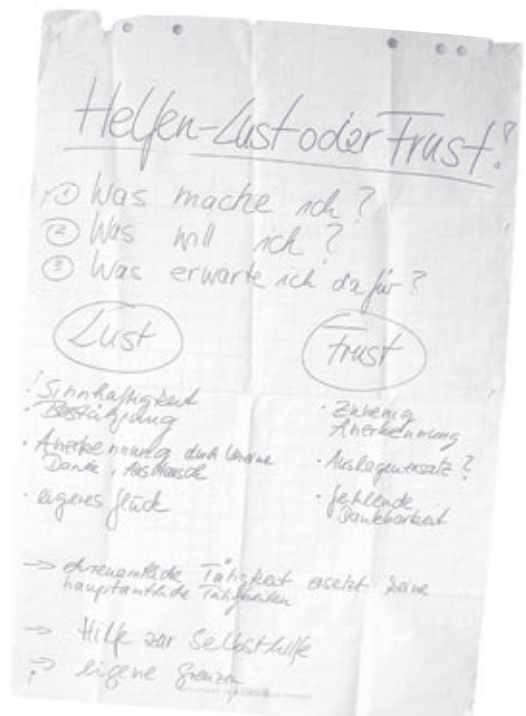 Helfen-Lust oder Frust?
① Was mache ich?
② Was will ich?
③ Was erwarte ich dafür?
Lust
Frust
· Sinnhaftigkeit
· Bestätigung
· Anerkennung durch
Danke, Austausch
· eigenes Glück
· Zuwenig
Anerkennung
· Auslagenersatz?
· fehlende
Dankbarkeit
→ ehrenamtliche Tätigkeit ersetzt keine
hauptamtliche Tätigkeiten
→ Hilfe zur Selbsthilfe
→ eigene Grenzen